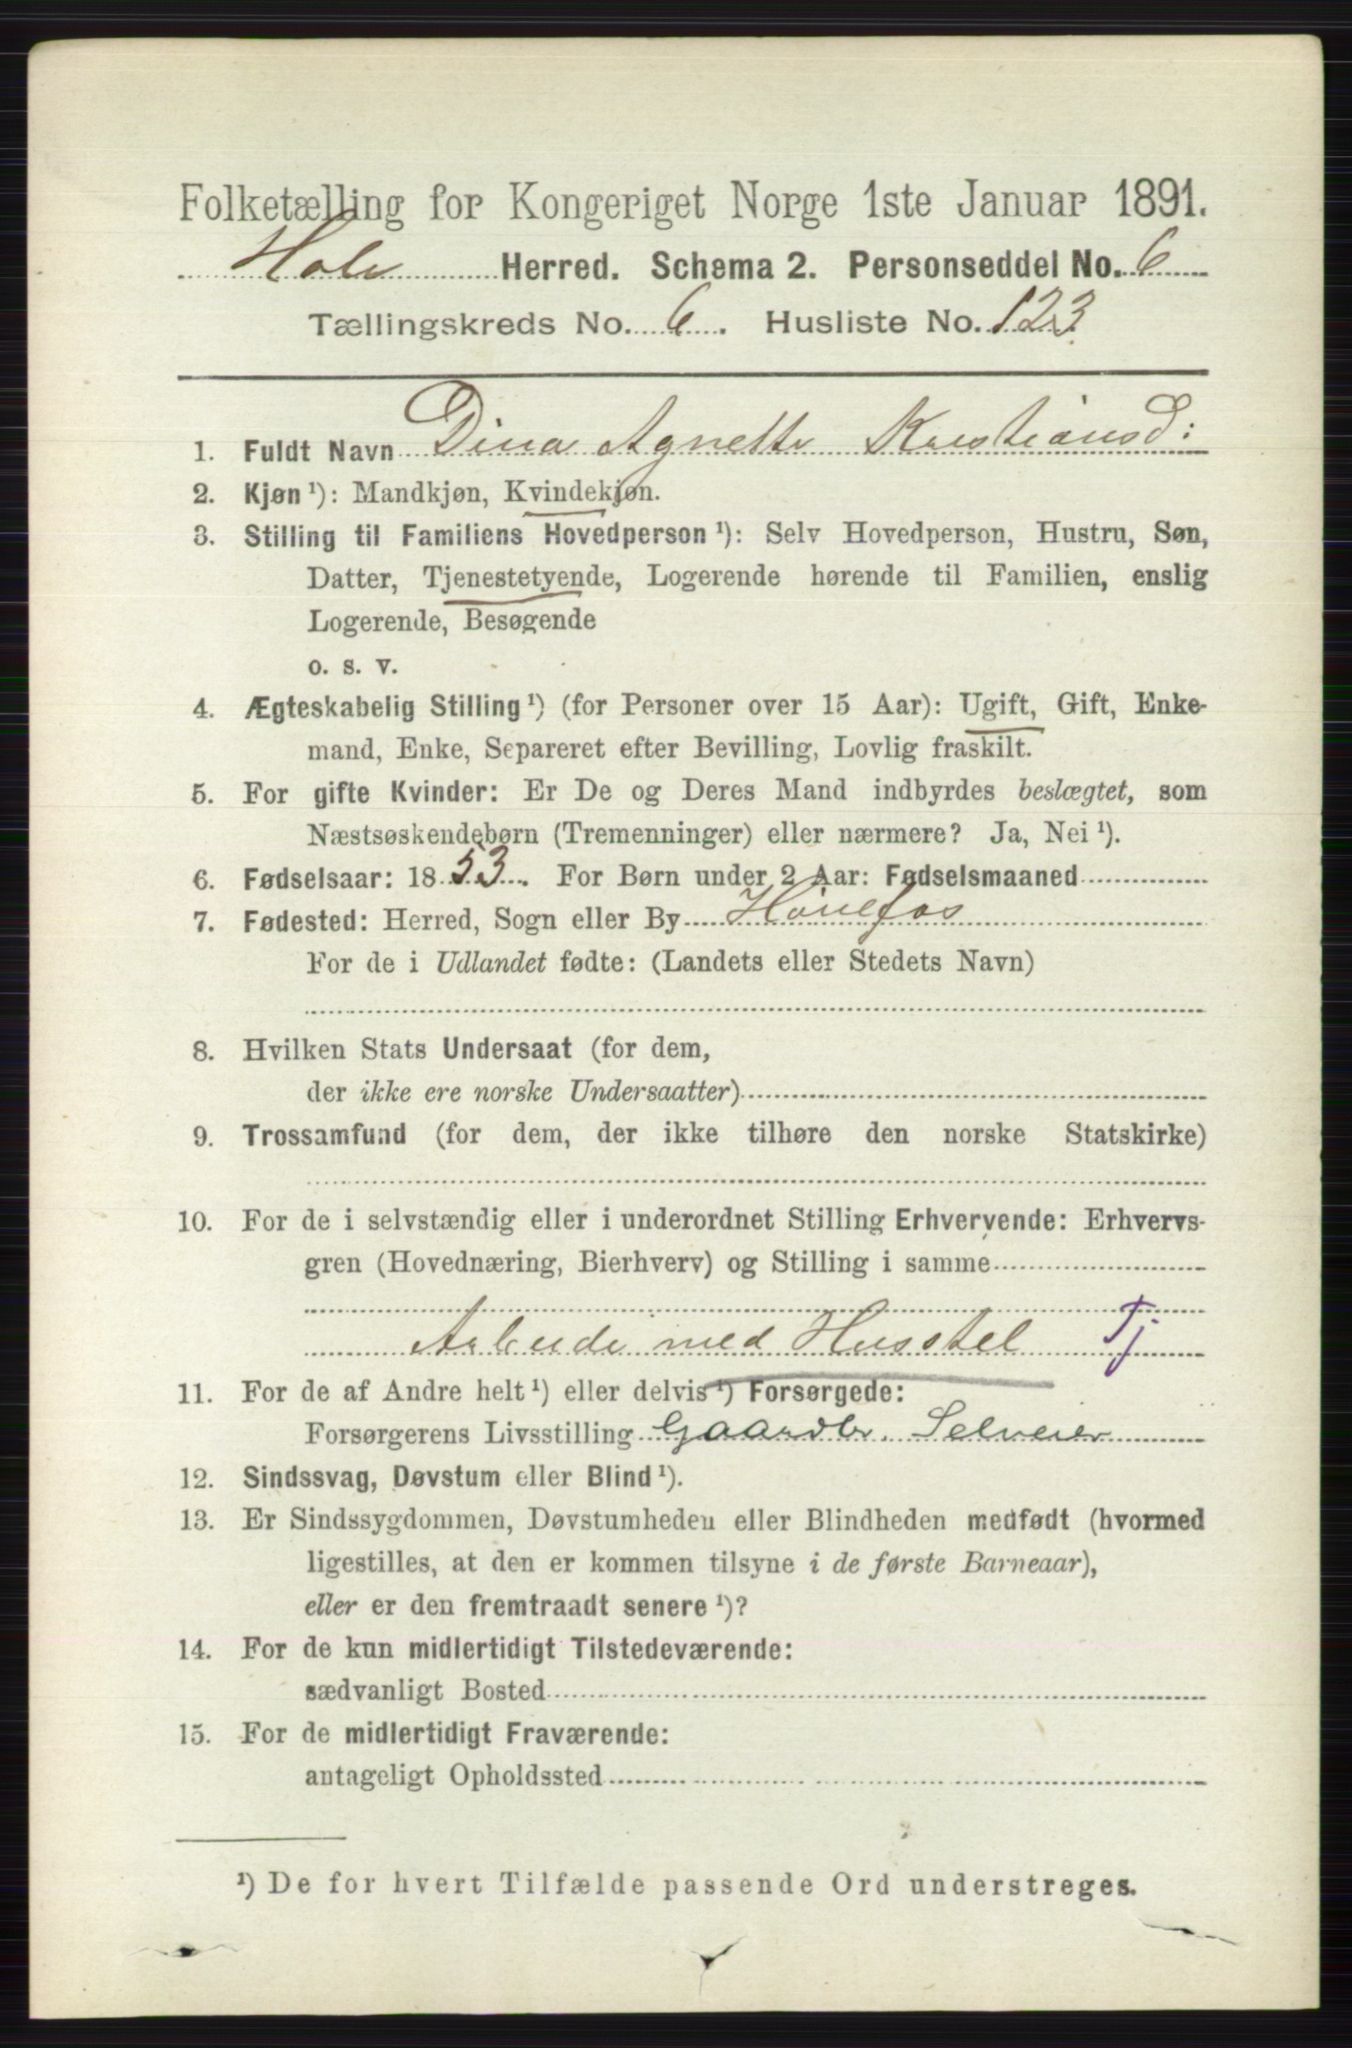 Folketælling for Kongeriget Norge 1ste Januar 1891.
Hole Herred. Schema 2. Personseddel No. 6
Tællingskreds No. 6. Husliste No. 123
1. Fuldt Navn Dina Agnette Kristiansd:
2. Kjøn¹): Mandkjøn, Kvindekjøn.
3. Stilling til Familiens Hovedperson¹): Selv Hovedperson, Hustru, Søn,
Datter, Tjenestetyende, Logerende hørende til Familien, enslig
Logerende, Besøgende
o. s. v.
4. Ægteskabelig Stilling¹) (for Personer over 15 Aar): Ugift, Gift, Enke-
mand, Enke, Separeret efter Bevilling, Lovlig fraskilt.
5. For gifte Kvinder: Er De og Deres Mand indbyrdes beslægtet, som
Næstsøskendebørn (Tremenninger) eller nærmere? Ja, Nei¹).
6. Fødselsaar: 1853. For Børn under 2 Aar: Fødselsmaaned
7. Fødested: Herred, Sogn eller By Hönefos
For de i Udlandet fødte: (Landets eller Stedets Navn)
8. Hvilken Stats Undersaat (for dem,
der ikke ere norske Undersaatter)
9. Trossamfund (for dem, der ikke tilhøre den norske Statskirke)
10. For de i selvstændig eller i underordnet Stilling Erhvervende: Erhvervs-
gren (Hovednæring, Bierhverv) og Stilling i samme
Arbeide med Husstel Tj
11. For de af Andre helt¹) eller delvis¹) Forsørgede:
Forsørgerens Livsstilling Gaardbr. Selveier
12. Sindssvag, Døvstum eller Blind¹).
13. Er Sindssygdommen, Døvstumheden eller Blindheden medfødt (hvormed
ligestilles, at den er kommen tilsyne i de første Barneaar),
eller er den fremtraadt senere¹)?
14. For de kun midlertidigt Tilstedeværende:
sædvanligt Bosted
15. For de midlertidigt Fraværende:
antageligt Opholdssted
¹) De for hvert Tilfælde passende Ord understreges.